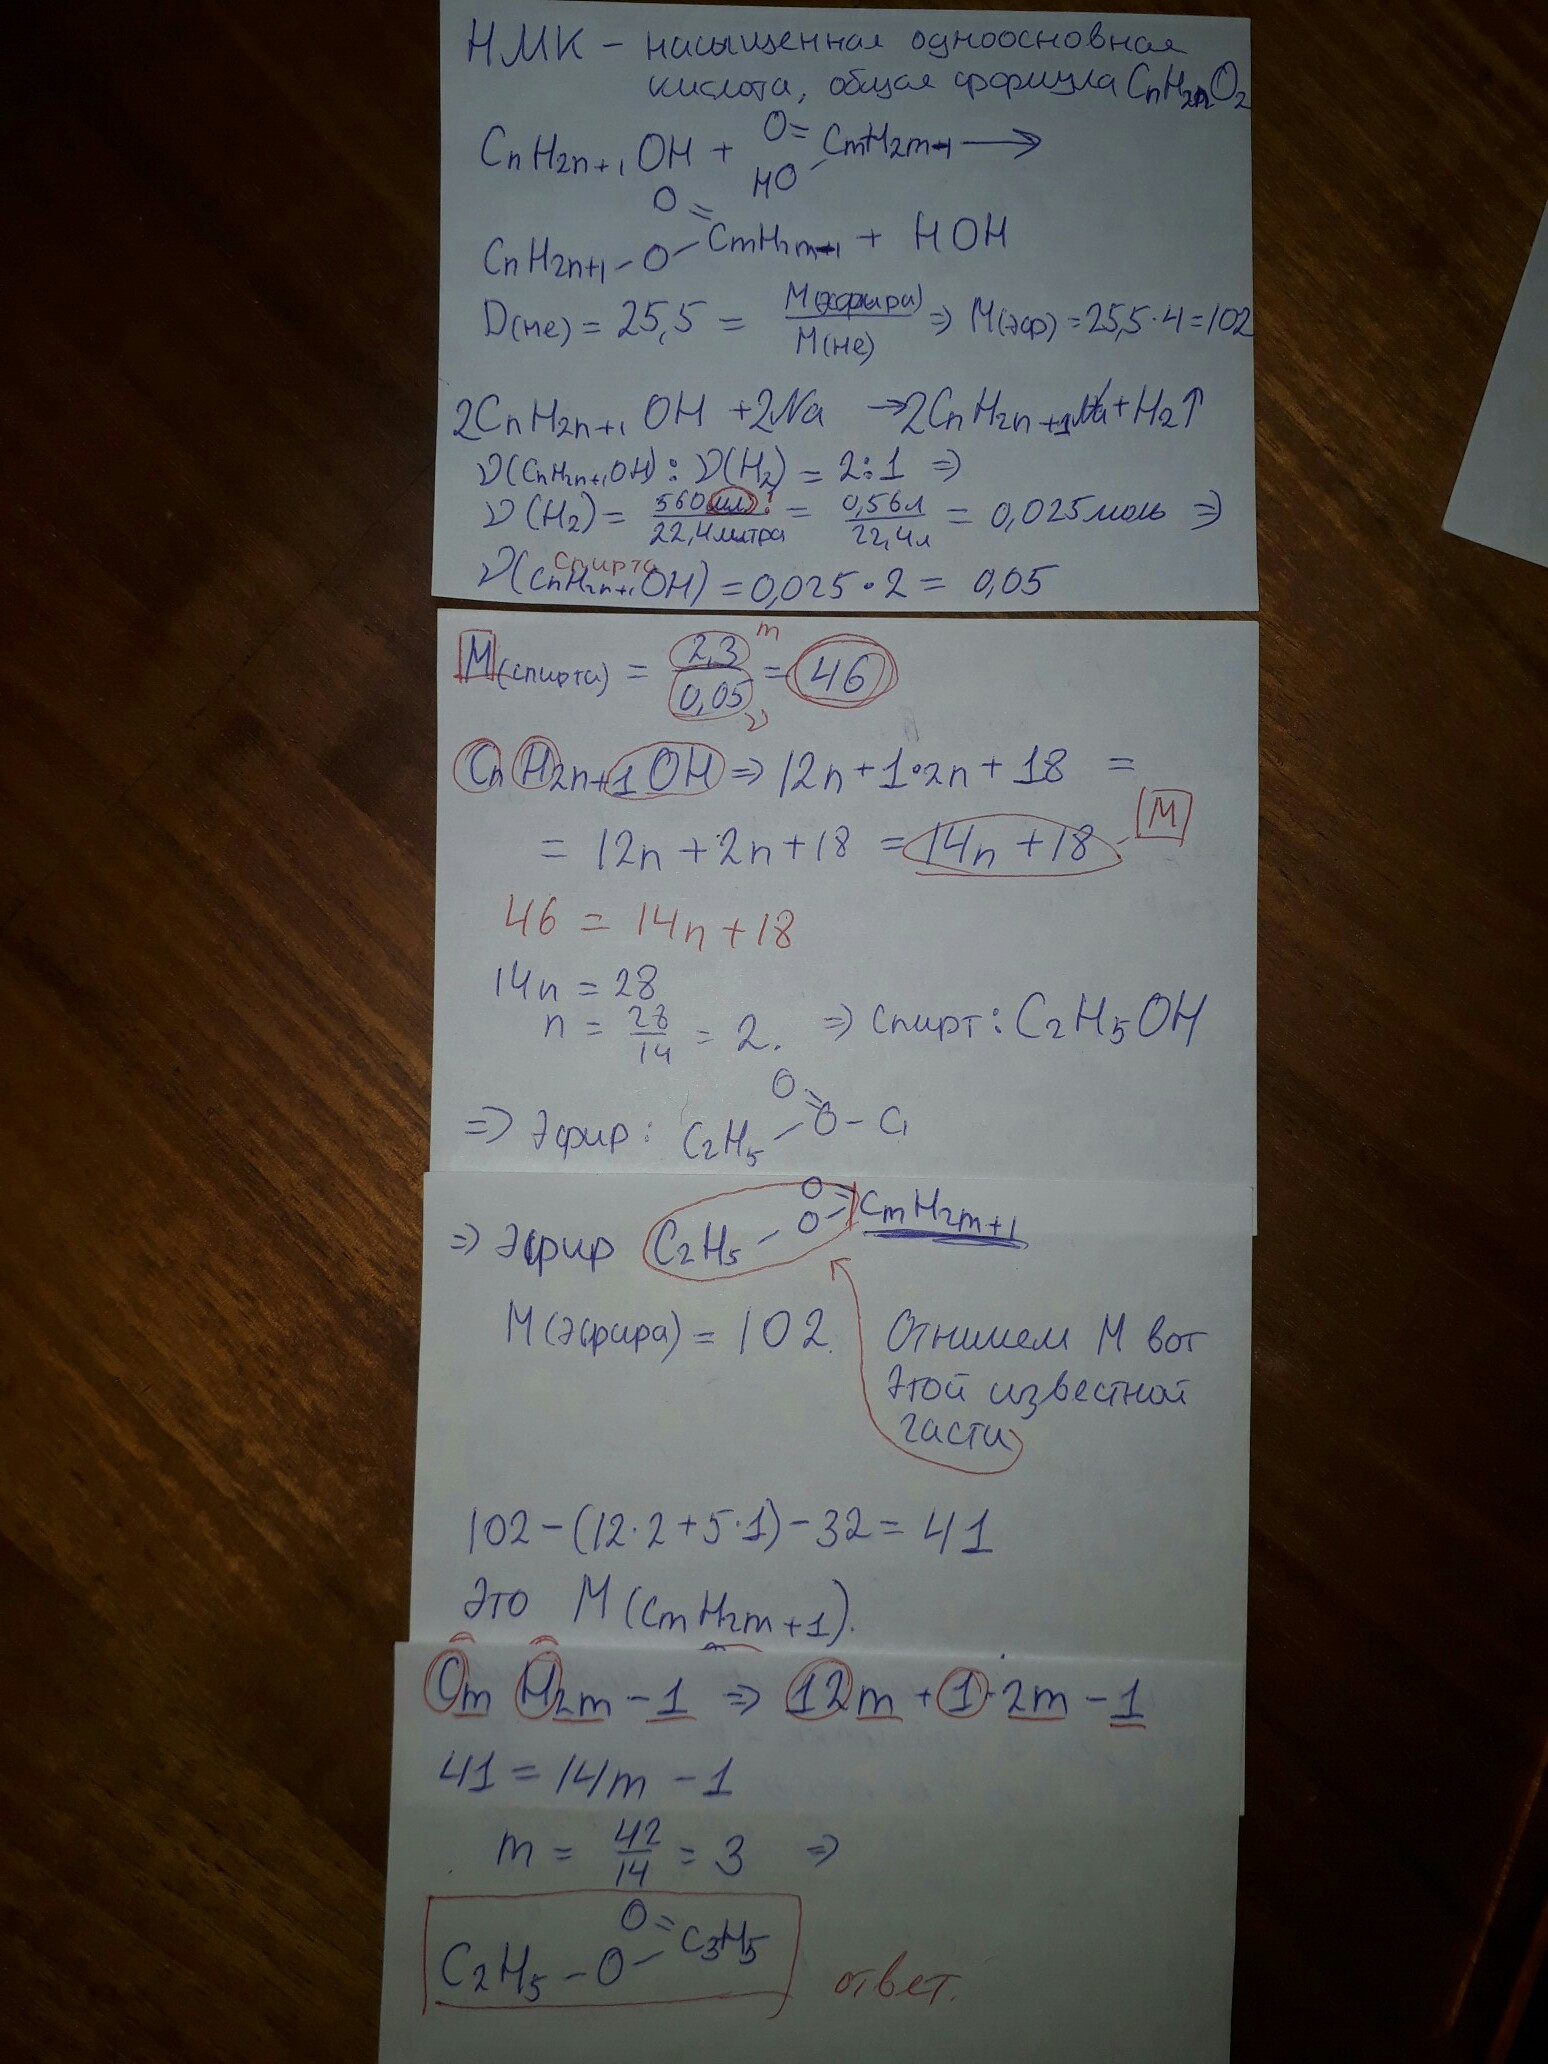 НМК – насыщенная одноосновная
кислота, общая формула CnH2nO2
CnH2n+1OH + O= CmH2m-1 →
HO
O
CnH2n+1 – O – CmH2m-1 + HOH
D(He) = 25,5 = M(эфира) / M(He) ⇒ M(эф) = 25,5·4=102
2CnH2n+1OH + 2Na → 2CnH2n+1Na + H2↑
ν(CnH2n+1OH) : ν(H2) = 2:1 ⇒
ν(H2) = 560мл! / 22,4литра = 0,56л / 22,4л = 0,025моль ⇒
спирта
ν(CnH2n+1OH) = 0,025·2 = 0,05
M(спирта) = 2,3 / 0,05 = 46
m
ν
CnH2n+1OH ⇒ 12n+1·2n+18 =
= 12n+2n+18 = 14n+18 M
46 = 14n+18
14n = 28
n = 28/14 = 2. ⇒ Спирт: C2H5OH
⇒ Эфир: C2H5 – O – C
O
⇒ Эфир C2H5 – O – CmH2m+1
O=
M(эфира) = 102. Отнимем M вот
этой известной
части
102-(12·2+5·1)-32=41
это M(CmH2m+1).
CmH2m-1 ⇒ 12m+1·2m-1
41=14m-1
m = 42/14 = 3 ⇒
O=
C2H5-O – C3H5
ответ.